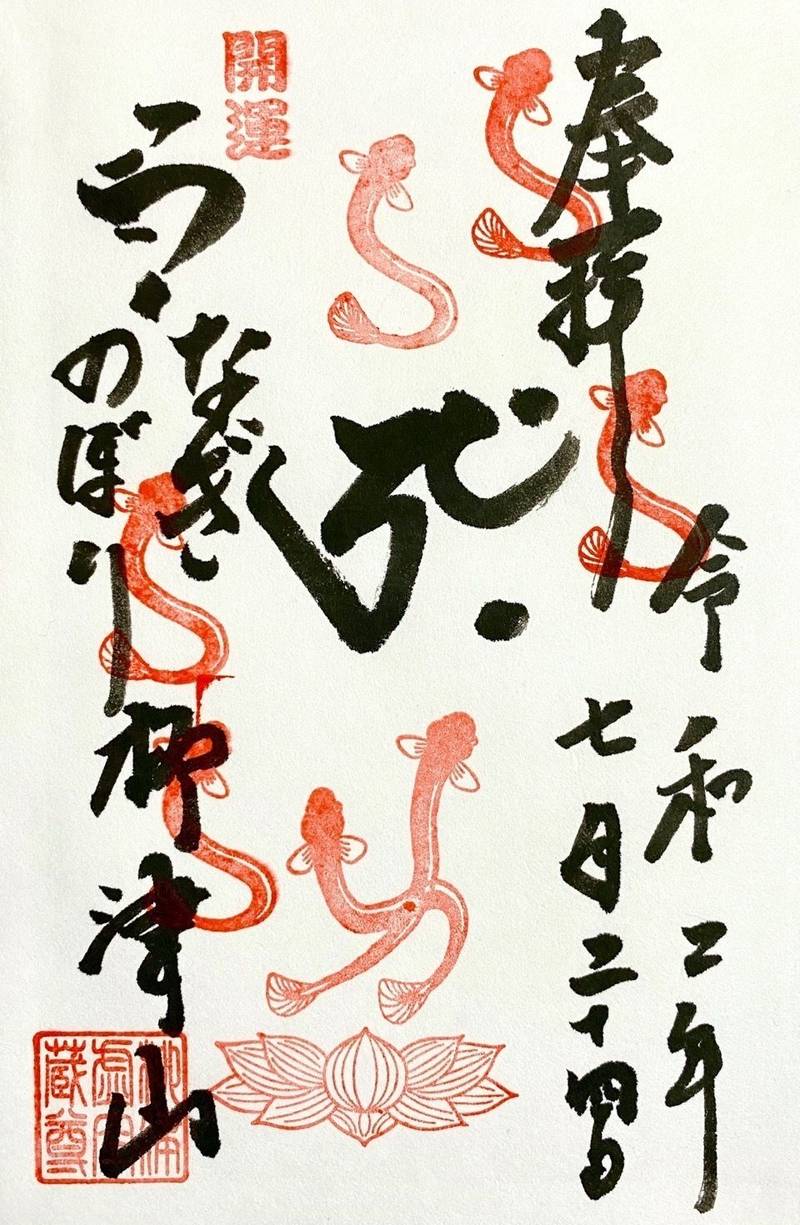 奉拝
令和二年
七月二十四日
開運
う
なぎ
のぼり
柳津山
柳津
虚空
蔵尊